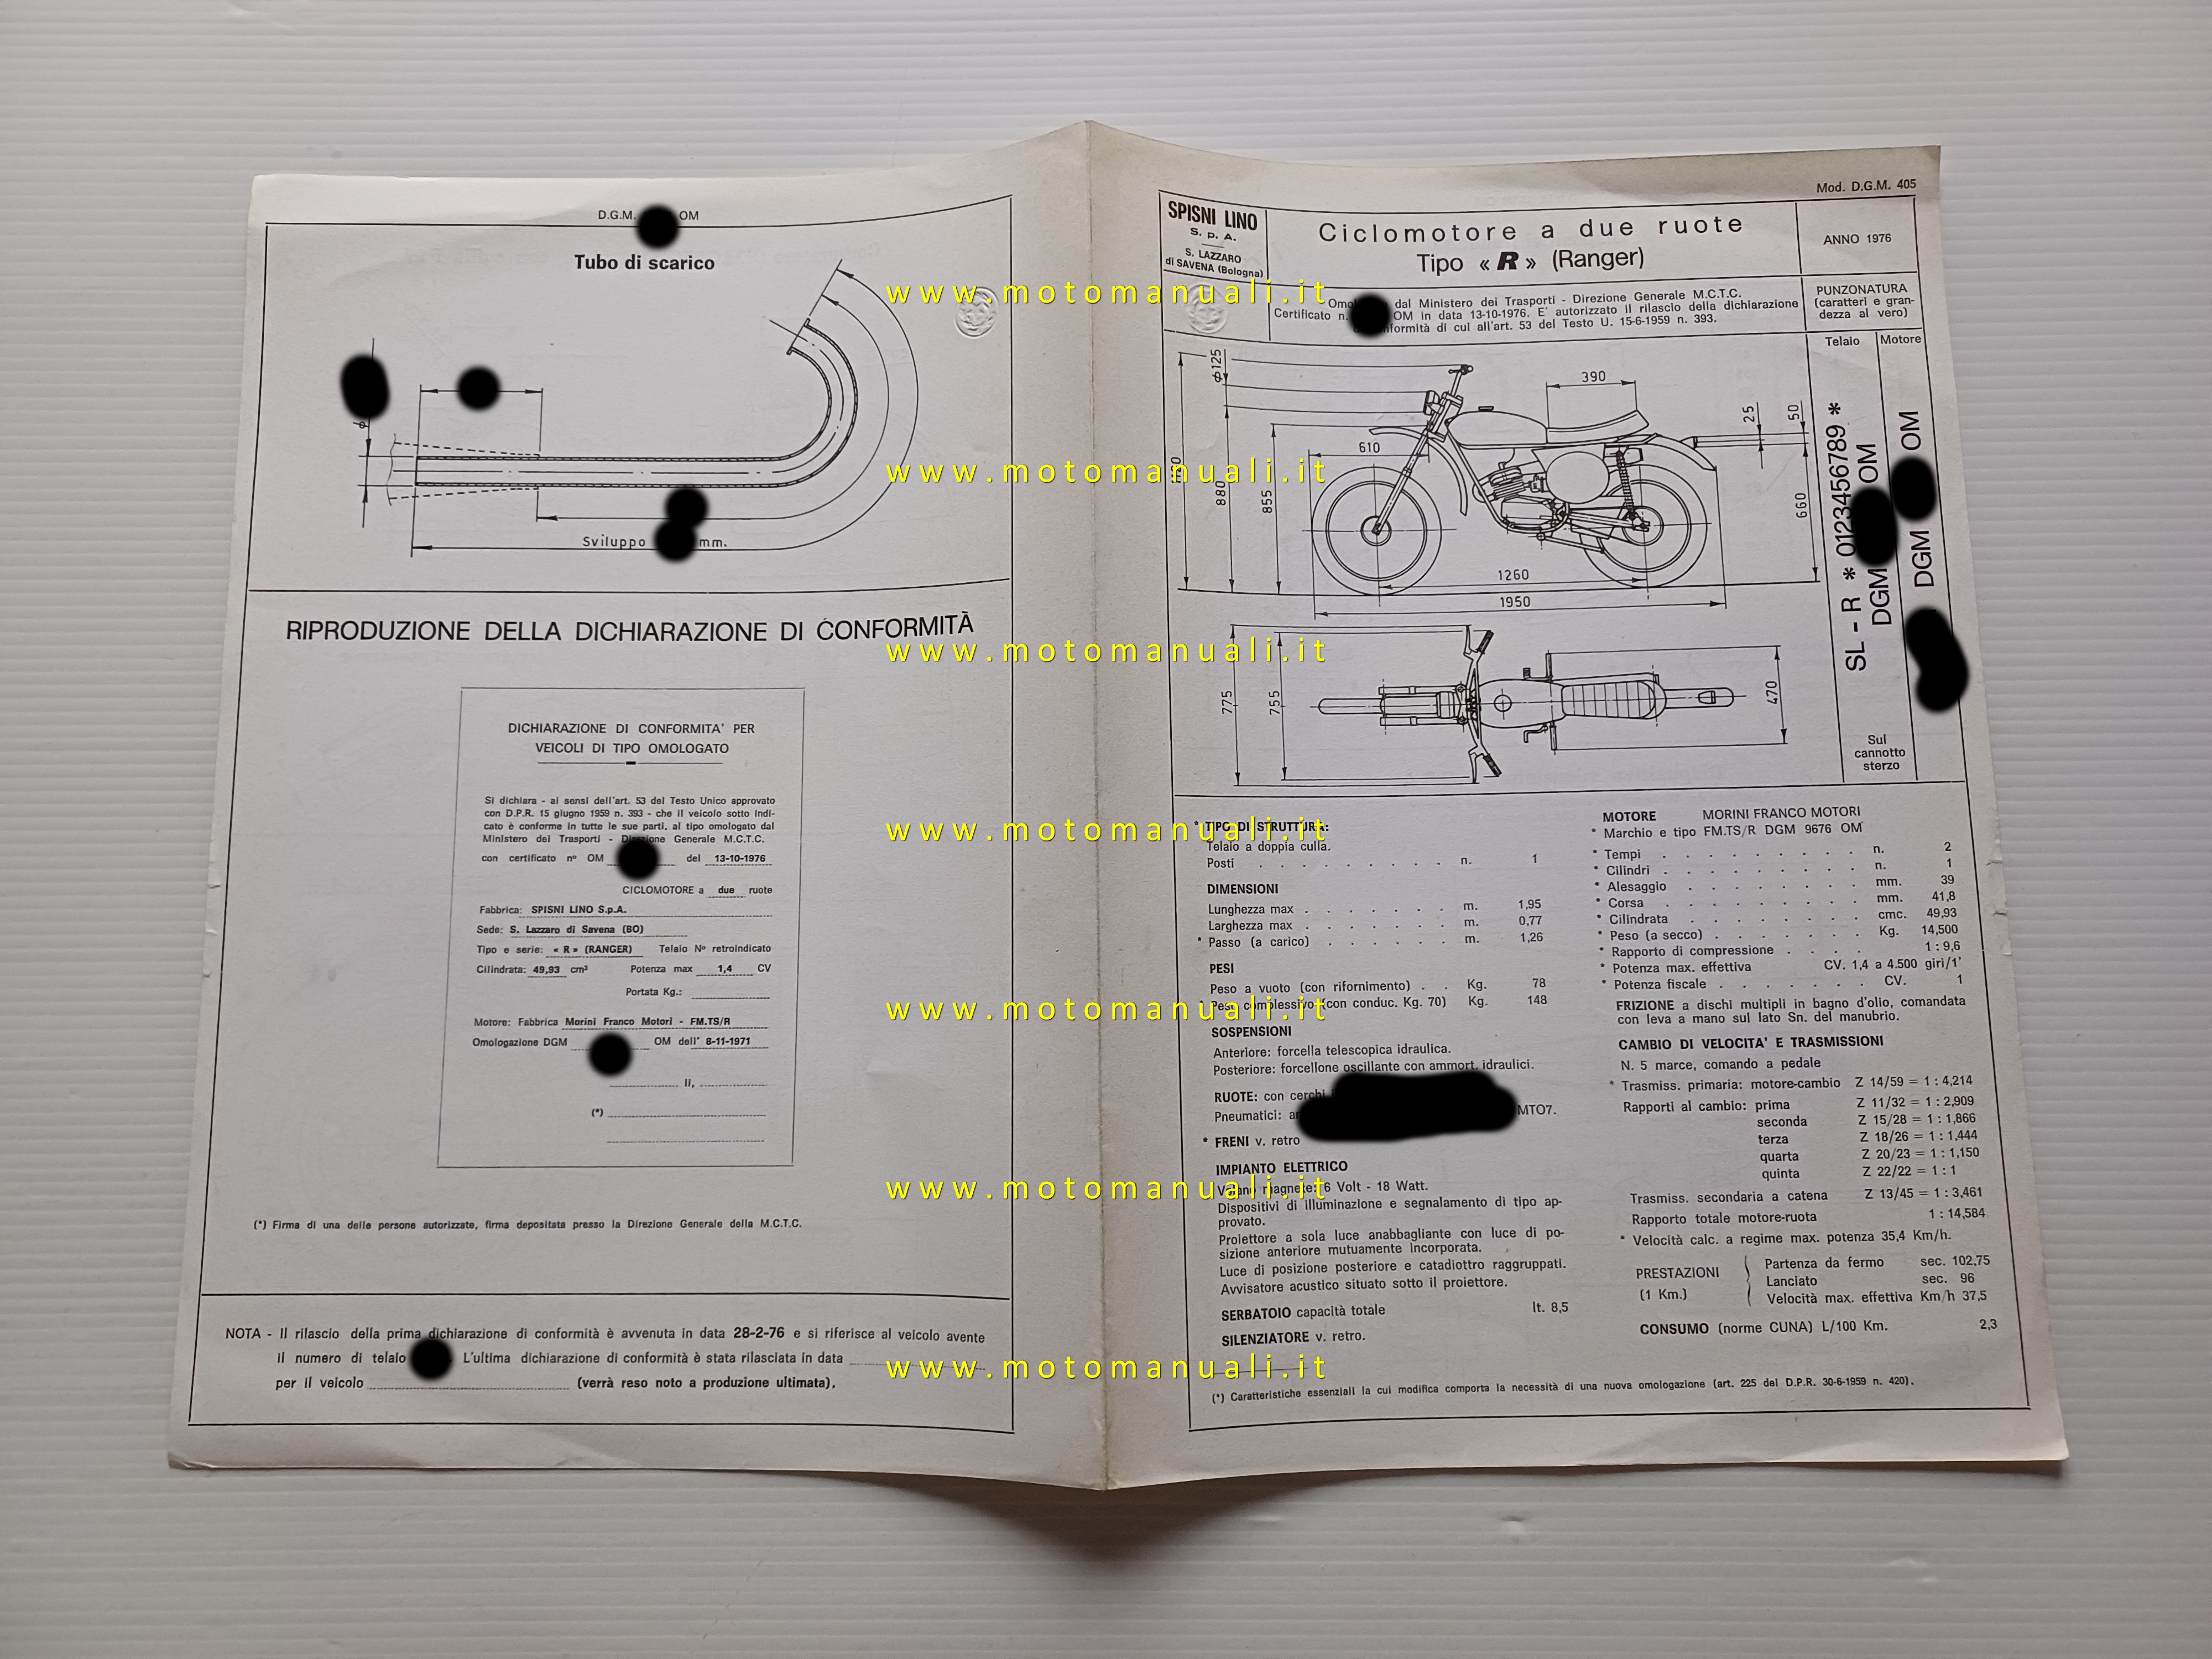 D.G.M. OM
Tubo di scarico
Sviluppo mm.
RIPRODUZIONE DELLA DICHIARAZIONE DI CONFORMITÀ
DICHIARAZIONE DI CONFORMITA' PER
VEICOLI DI TIPO OMOLOGATO
Si dichiara - ai sensi dell'art. 53 del Testo Unico approvato
con D.P.R. 15 giugno 1959 n. 393 - che il veicolo sotto indi-
cato è conforme in tutte le sue parti, al tipo omologato dal
Ministero dei Trasporti - Direzione Generale M.C.T.C.
con certificato nº OM del 13-10-1976
CICLOMOTORE a due ruote
Fabbrica: SPISNI LINO S.p.A.
Sede: S. Lazzaro di Savena (BO)
Tipo e serie: « R » (RANGER) Telaio Nº retroindicato
Cilindrata: 49,93 cm³ Potenza max 1,4 CV
Portata Kg.:
Motore: Fabbrica Morini Franco Motori - FM.TS/R
Omologazione DGM OM dell' 8-11-1971
li,
(*)
(*) Firma di una delle persone autorizzate, firma depositata presso la Direzione Generale della M.C.T.C.
NOTA - Il rilascio della prima dichiarazione di conformità è avvenuta in data 28-2-76 e si riferisce al veicolo avente
il numero di telaio . L'ultima dichiarazione di conformità è stata rilasciata in data
per il veicolo (verrà reso noto a produzione ultimata).
Mod. D.G.M. 405
SPISNI LINO
S. p. A.
S. LAZZARO
di SAVENA (Bologna)
Ciclomotore a due ruote
Tipo « R » (Ranger)
ANNO 1976
dal Ministero dei Trasporti - Direzione Generale M.C.T.C.
Certificato n. OM in data 13-10-1976. E' autorizzato il rilascio della dichiarazione
conformità di cui all'art. 53 del Testo U. 15-6-1959 n. 393.
PUNZONATURA
(caratteri e gran-
dezza al vero)
Telaio
Motore
SL - R * 0123456789 *
DGM OM
DGM OM
Sul
cannotto
sterzo
ϕ125
390
25
50
610
880
855
660
1260
1950
775
755
470
* TIPO DI STRUTTURA:
Telaio a doppia culla.
Posti . . . . . . . . n. 1
DIMENSIONI
Lunghezza max . . . . . . m. 1,95
Larghezza max . . . . . . m. 0,77
* Passo (a carico) . . . . . m. 1,26
PESI
Peso a vuoto (con rifornimento) . . Kg. 78
* Peso complessivo (con conduc. Kg. 70) Kg. 148
SOSPENSIONI
Anteriore: forcella telescopica idraulica.
Posteriore: forcellone oscillante con ammort. idraulici.
RUOTE: con cerchi
Pneumatici: MTO7.
* FRENI v. retro
IMPIANTO ELETTRICO
Volano magnete: 6 Volt - 18 Watt.
Dispositivi di illuminazione e segnalamento di tipo ap-
provato.
Proiettore a sola luce anabbagliante con luce di po-
sizione anteriore mutuamente incorporata.
Luce di posizione posteriore e catadiottro raggruppati.
Avvisatore acustico situato sotto il proiettore.
SERBATOIO capacità totale lt. 8,5
SILENZIATORE v. retro.
MOTORE MORINI FRANCO MOTORI
* Marchio e tipo FM.TS/R DGM 9676 OM
* Tempi . . . . . . . . . n. 2
* Cilindri . . . . . . . . . n. 1
* Alesaggio . . . . . . . . mm. 39
* Corsa . . . . . . . . . mm. 41,8
* Cilindrata . . . . . . . . cmc. 49,93
* Peso (a secco) . . . . . . . Kg. 14,500
* Rapporto di compressione . . . . 1 : 9,6
* Potenza max. effettiva CV. 1,4 a 4.500 giri/1'
* Potenza fiscale . . . . . . . CV. 1
FRIZIONE a dischi multipli in bagno d'olio, comandata
con leva a mano sul lato Sn. del manubrio.
CAMBIO DI VELOCITA' E TRASMISSIONI
N. 5 marce, comando a pedale
* Trasmiss. primaria: motore-cambio Z 14/59 = 1 : 4,214
Rapporti al cambio: prima Z 11/32 = 1 : 2,909
seconda Z 15/28 = 1 : 1,866
terza Z 18/26 = 1 : 1,444
quarta Z 20/23 = 1 : 1,150
quinta Z 22/22 = 1 : 1
Trasmiss. secondaria a catena Z 13/45 = 1 : 3,461
Rapporto totale motore-ruota 1 : 14,584
* Velocità calc. a regime max. potenza 35,4 Km/h.
PRESTAZIONI
(1 Km.)
Partenza da fermo sec. 102,75
Lanciato sec. 96
Velocità max. effettiva Km/h 37,5
CONSUMO (norme CUNA) L/100 Km. 2,3
(*) Caratteristiche essenziali la cui modifica comporta la necessità di una nuova omologazione (art. 225 del D.P.R. 30-6-1959 n. 420).
www.motomanuali.it
www.motomanuali.it
www.motomanuali.it
www.motomanuali.it
www.motomanuali.it
www.motomanuali.it
www.motomanuali.it